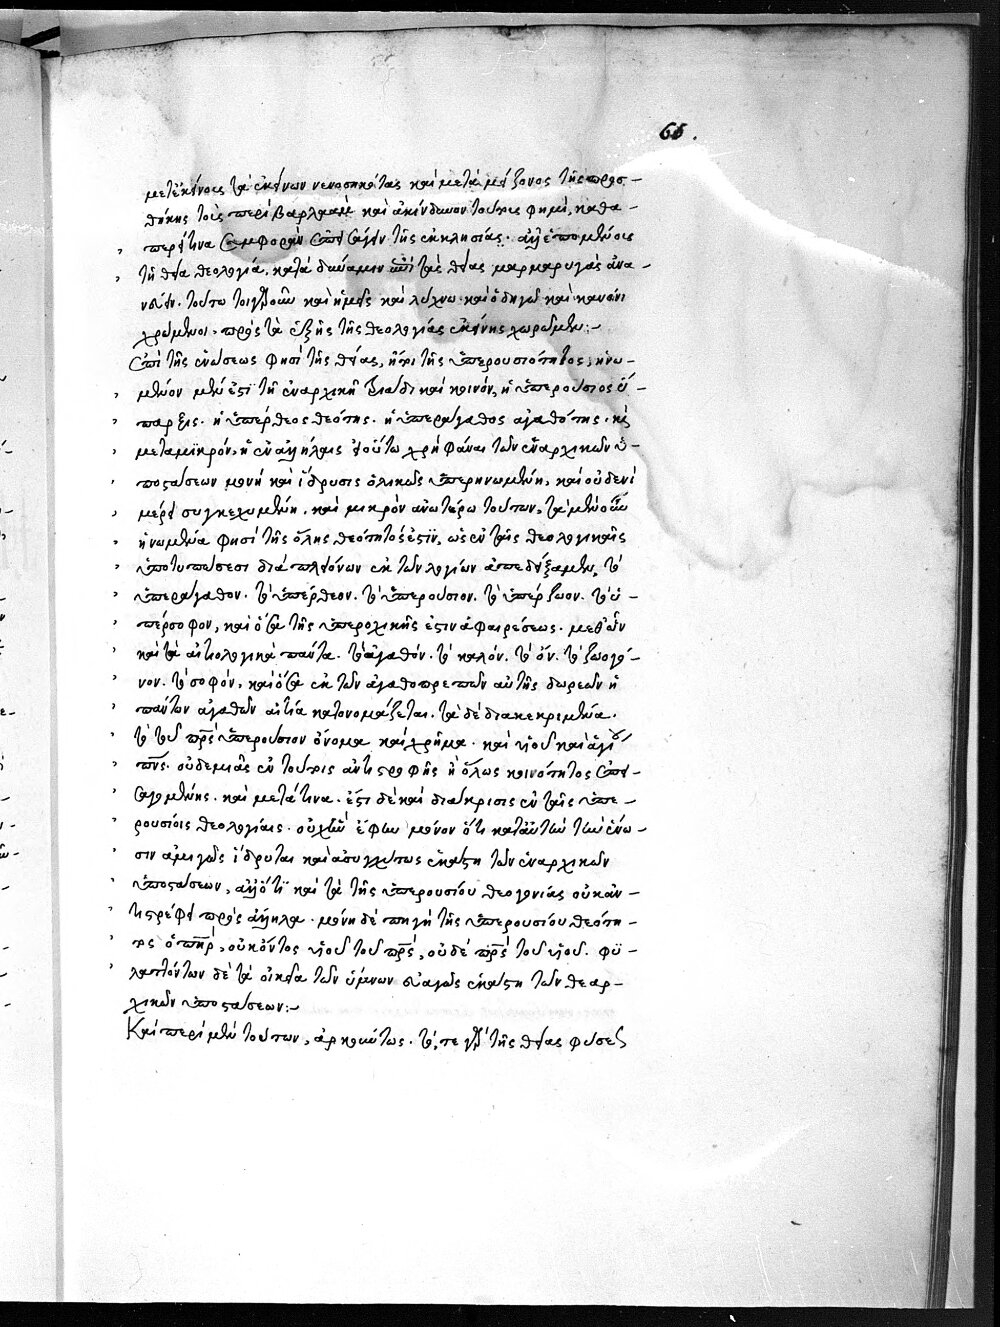 65.
μετ' ἐκείνους τὰ ἐκείνων νενοσηκότας καὶ μετὰ μείζονος τῆς προσ-
θήκης τοὺς περὶ Βαρλαὰμ καὶ ἀκίνδυνον τούτοις φημί, καθα-
περ τινα συμφορὰν τῆς ἐκκλησίας. ἀλλ' ἑπομένοις
τῇ θεία θεολογία, κατὰ δύναμιν ἐπὶ τὰς θείας μαρμαρυγὰς ἀνα-
νεύειν. τούτω τοιγαροῦν καὶ ἡμεῖς καὶ λύχνω καὶ ὁδηγῶ καὶ κανόνι
χρώμενοι, πρὸς τὰ ἑξῆς τῆς θεολογίας ἐκείνης χωρῶμεν:-
Ἐπὶ τῆς ἑνώσεως φησὶ τῆς θείας, ἤτοι τῆς ὑπερουσιότητος, ἡνω-
μένον μέν ἐστι τῇ ἐναρχικῇ τριάδι καὶ κοινόν, ἡ ὑπερούσιος ὕ-
παρξις. ἡ ὑπέρθεος θεότης. ἡ ὑπεράγαθος ἀγαθότης. καὶ
μεταμικρόν, ἡ ἐν ἀλλήλαις εἰ οὕτω χρὴ φάναι τῶν ἐναρχικῶν ὑ-
ποστάσεων μονὴ καὶ ἵδρυσις ὁλικῶς ὑπερηνωμένη, καὶ οὐδενὶ
μέρει συγκεχυμένη. καὶ μικρὸν ἀνωτέρω τούτων, τὰ μὲν οὖν
ἡνωμένα φησὶ τῆς ὅλης θεότητός ἐστιν, ὡς ἐν ταῖς θεολογικαῖς
ὑποτυπώσεσι διὰ πλειόνων ἐκ τῶν λογίων ἀπεδείξαμεν, τὸ
ὑπεράγαθον. τὸ ὑπέρθεον. τὸ ὑπερούσιον. τὸ ὑπέρζωον. τὸ ὑ-
πέρσοφον, καὶ ὅσα τῆς ὑπεροχικῆς ἐστιν ἀφαιρέσεως. μεθ' ὧν
καὶ τὰ αἰτιολογικὰ πάντα. τὸ ἀγαθόν. τὸ καλόν. τὸ ὄν. τὸ ζωογό-
νον. τὸ σοφόν, καὶ ὅσα ἐκ τῶν ἀγαθοπρεπῶν αὐτῆς δωρεῶν ἡ
πάντων ἀγαθῶν αἰτία κατονομάζεται. τὰ δὲ διακεκριμένα.
τὸ τοῦ πρς ὑπερούσιον ὄνομα καὶ χρῆμα. καὶ υἱοῦ καὶ ἁγίου
πνς. οὐδεμιᾶς ἐν τούτοις ἀντιστροφῆς ἢ ὅλως κοινότητος ἐπει-
σαγομένης. καὶ μετά τινα. ἔστι δὲ καὶ διάκρισις ἐν ταῖς ὑπε-
ρουσίοις θεολογίαις. οὐχ ἣν ἔφην μόνον ὅτι κατ' αὐτὴν τὴν ἕνω-
σιν ἀμιγῶς ἵδρυται καὶ ἀσυγχύτως ἑκάστη τῶν ἐναρχικῶν
ὑποστάσεων, ἀλλ' ὅτι καὶ τὰ τῆς ὑπερουσίου θεογονίας οὐκ ἀν-
τιστρέφει πρὸς ἄλληλα. μόνη δὲ πηγὴ τῆς ὑπερουσίου θεότη-
τος ὁ πηρ, οὐκ ὄντος υἱοῦ τοῦ πρς, οὐδὲ πρς τοῦ υἱοῦ. φυ-
λαττόντων δὲ τὰ οἰκεῖα τῶν ὕμνων εὐαγῶς ἑκάστη τῶν θεαρ-
χικῶν ὑποστάσεων:-
Καὶ περὶ μὲν τούτων, ἀρκούντως. τό, τε γὰρ τῆς θείας φύσεως